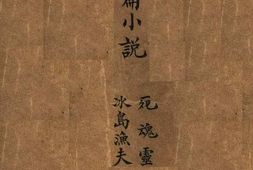 篇小説
死魂靈
冰島漁夫